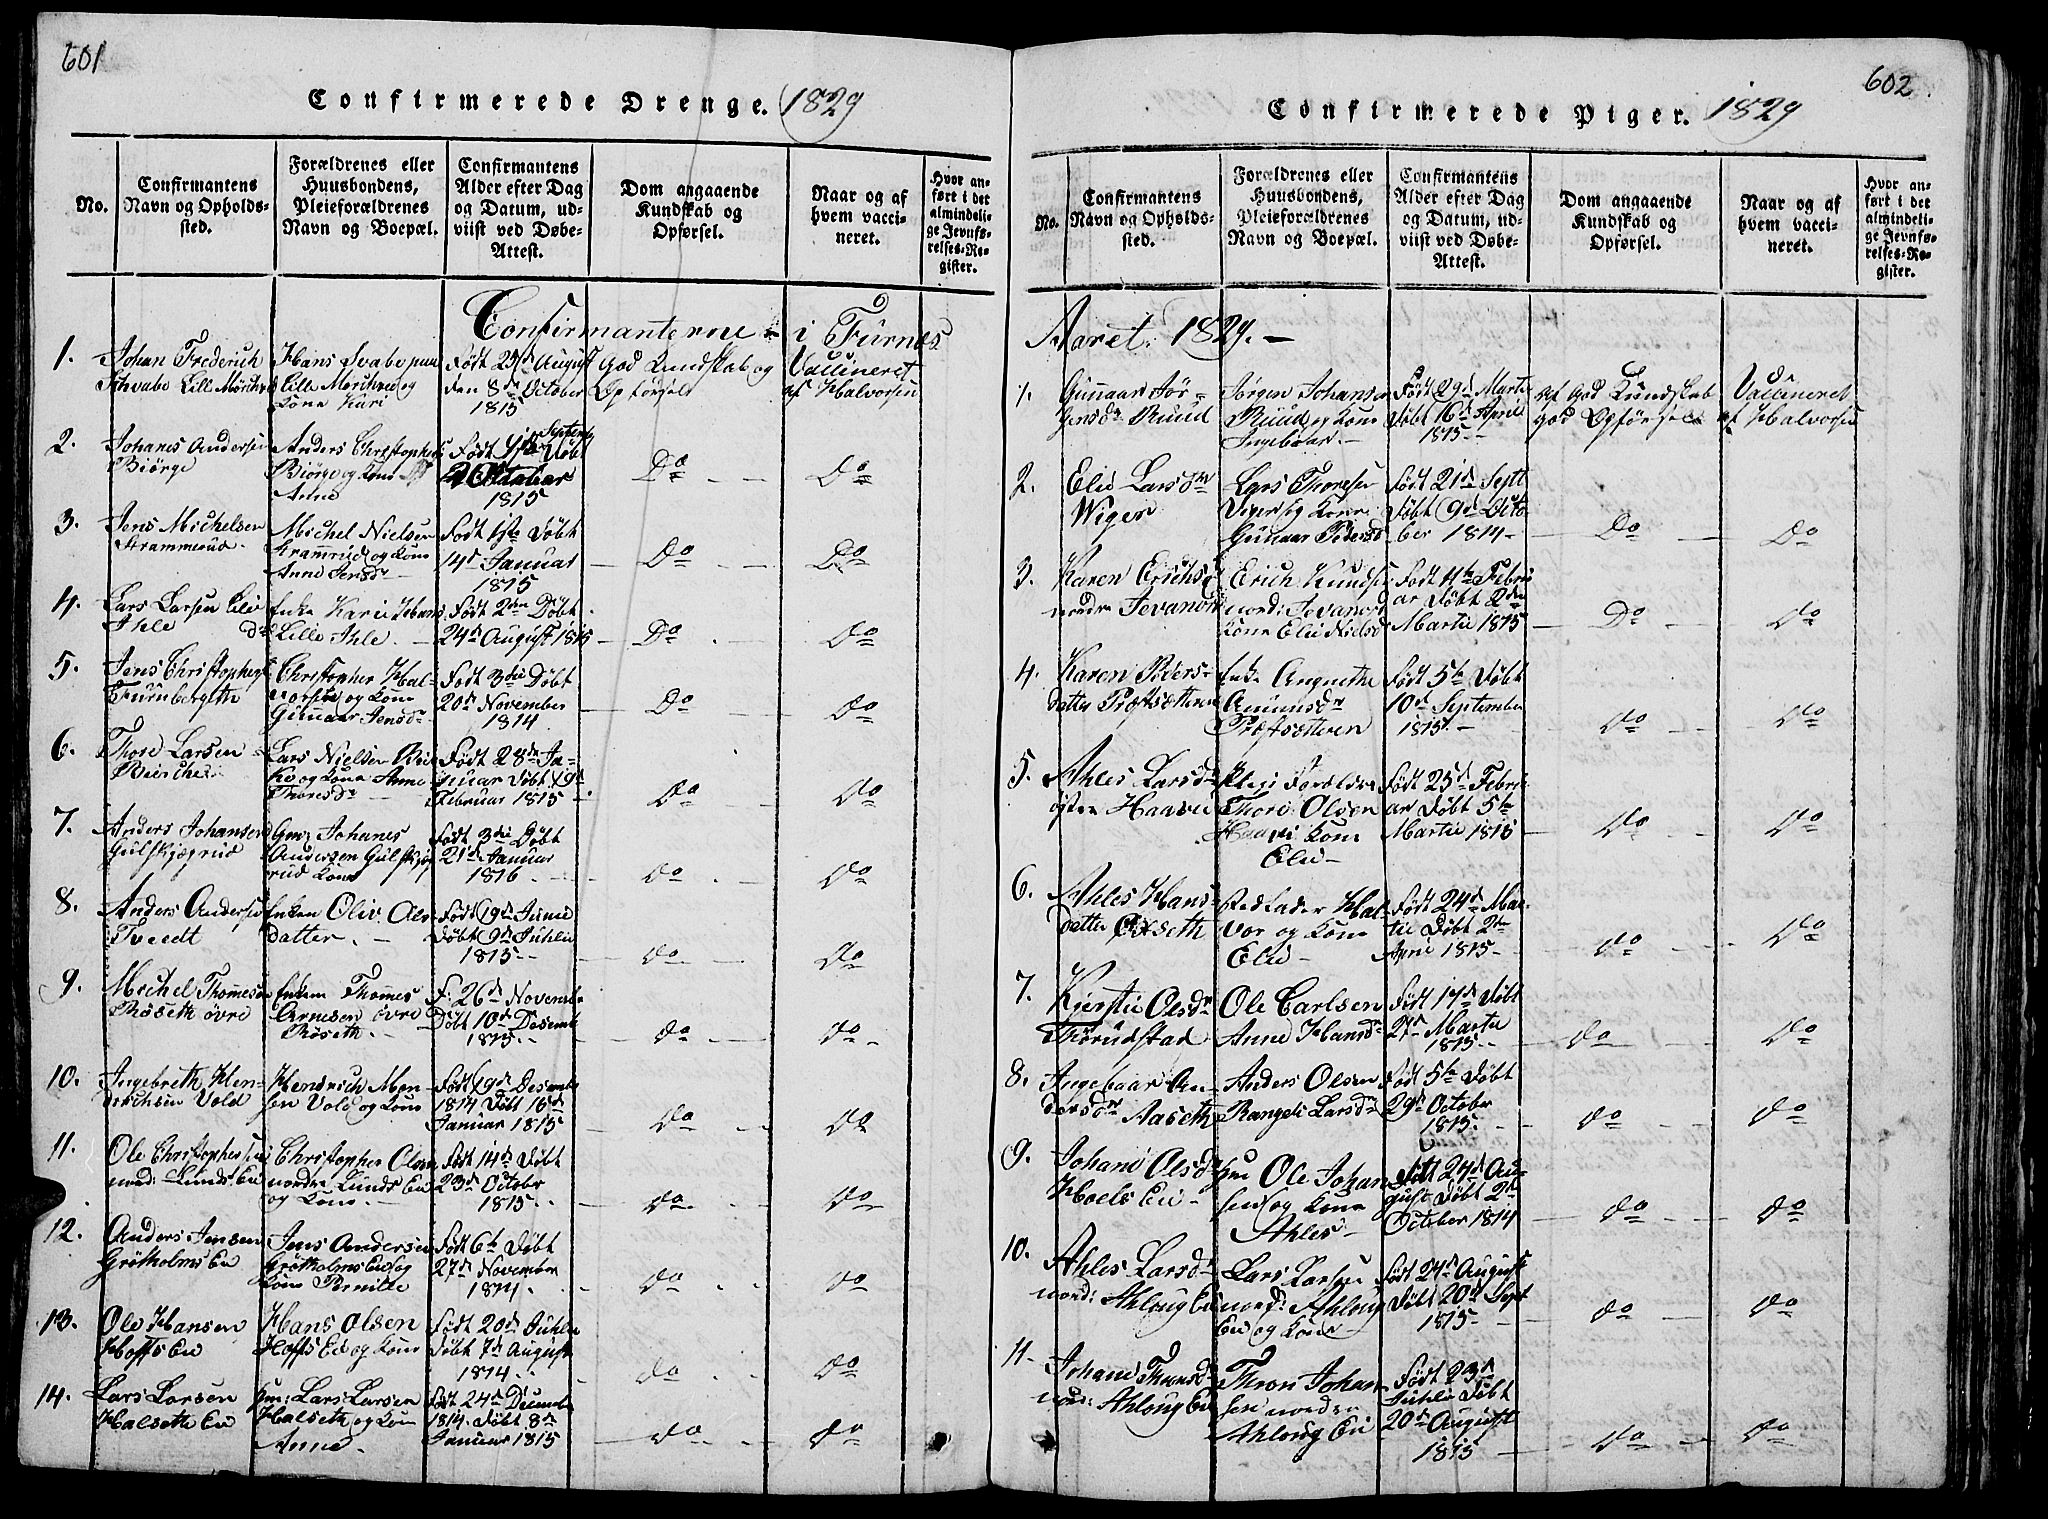 601
Confirmerede Drenge. 1829
No.
Confirmantens
Navn og Opholds-
sted.
Forældrenes eller
Huusbondens,
Pleieforældrenes
Navn og Boepæl.
Confirmantens
Alder efter Dag
og Datum, ud-
viist ved Døbe-
Attest.
Dom angaaende
Kundskab og
Opførsel.
Naar og af
hvem vacci-
neret.
Hvor an-
ført i det
almindeli-
ge Jevnfø-
relses-Re-
gister.
Confirmanterne i Furnæs
1.
Johan Frederich
Schvabe Lille Mørchved
Hans Svabe
Lille Mørchved og
Kone Kari
Født August
den 8de October
1815
God Kundskab og
Opførsel
Vaccineret
af Halvorsen
2.
Johanes Andersen
Biørge
Anders Christophers
Biørge og Kone
Anne
Født Septemb
Døbt
1815
Do
Do
3.
Jens Michelsen
Strammerud
Michel Nielsen
Stramrud og Kone
Anne Jensdr
Født 1ste Døbt
14d Januar
1815
Do
Do
4.
Lars Larsen Lille
Ihle
Enke Karie Hans
dr Lille Ihle
Født 2den Døbt
24d August 1815
Do
Do
5.
Jens Christophers
Furuberget
Christopher Hal-
vorsen og Kone
Gunnar Jensdr
Født 3die Døbt
20d November
1814
Do
Do
6.
Thore Larsen
Birche
Lars Nielsen Bir
ke og Kone Anne
Thoresdr
Født 28de Ja-
nuar Døbt 19d
Februar 1815
Do
Do
7.
Anders Johansen
Gulskjegrud
Gmd Johanes
Andersen Gulskjeg
rud Kone
Født 3die Døbt
21d Januar
1816
do
Do
8.
Anders Andersen
Tveedt
Enken Oliv Ols
datter
Født 19d Junie
Døbt 9d Juhlie
1815
do
Do
9.
Michel Thommesen
Røseth øvre
Enkem Thommes
Arnesen øvre
Røseth
F. 26d Novemb
Døbt 10d Desemb
1815
do
do
10.
Ingebreth Hen-
drichsen Vold
Hendrich Mon
sen Vold og Kone
Født 19d Desemb
1814 Døbt 15d
Januar 1815
do
do
11.
Ole Christophersen
nord: Lunds Eie
Christopher Olsen
nordre Lunds Eie
og Kone
Født 14d Døbt
23d October
1815
do
do
12.
Anders Jensen
Grøtholms Eie
Jens Andersen
Grøtholms Eie og
Kone Pernille
Født 6te Døbt
27d November
1814
do
do
13.
Ole Hansen
Hoffs Eie
Hans Olsen
Hoffs Eie og Kone
Født 20d Juhlie
Døbt 7d August
1814
do
do
14.
Lars Larsen
Halseth Eie
Gm: Lars Larsen
Halseth og Kone
Anne
Født 24d Decemb
1814. Døbt 8d
Januar 1815
do
do
602
Confirmerede Piger. 1829
No.
Confirmantens
Navn og Opholds-
sted.
Forældrenes eller
Huusbondens,
Pleieforældrenes
Navn og Boepæl.
Confirmantens
Alder efter Dag
og Datum, ud-
viist ved Døbe-
Attest.
Dom angaaende
Kundskab og
Opførsel.
Naar og af
hvem vacci-
neret.
Hvor an-
ført i det
almindeli-
ge Jevnfø-
relses-Re-
gister.
Aaret 1829.
1.
Gunnaar Jør-
gensdr Ruud
Jørgen Johansen
Ruud og Kone
Ingebaar
Født 29d Martii
Døbt 16d Aprie
1815
Af God Kundskab
God Opførsel
Vaccineret
af Halvorsen
2.
Elie Larsdtr
Wiger
Lars Thoresen
Viger og Kone
Gunnaar Pedersd
Født 21d Sept
Døbt 9d Octo
ber 1814
Do
Do
3.
Karen Erichsd
nordre Jevanord
Erich Knudsen
nord: Jevanord
Kone Elie Nielsd
Født 4te Febru
ar Døbt 2den
Martie 1815
Do
Do
4.
Karen Peders-
datter Præstsætteren
Enke Angnethe
Amunsdr
Præstsætteren
Født 5te Døbt
10d September
1815
Do
Do
5.
Ahles Larsdr
østre Haave
Pleie Forældre
Thore Olsen
Haave Kone
Elie
Født 25d Febru
ar Døbt 5te
Martie 1815
Do
Do
6.
Ahles Hans-
datter Oxseth
Stedfader Hal-
vor og Kone
Elie
Født 24d Mar-
tie Døbt 2den
Aprie 1815
do
Do
7.
Kjerstie Olsdr
Thorudstad
Ole Carlsen
Anne Hansdr
Født 17d Døbt
27d Martie
1815
do
Do
8.
Ingebaar An-
dersdr Aaseth
Anders Olsen
Rangele Larsdr
Født 5te Døbt
29d October
1815
do
Do
9.
Johane Olsdr
Hoels Eie
Gm Ole Johan
sen og Kone
Ahles
Født 24d Au-
gust Døbt 2d
October 1814
do
do
10.
Ahles Larsdr
nord: Ahloug Eie
Lars Larsen
nord: Ahloug
Eie og Kone
Født 24d August
Døbt 20d Sept
1815
do
do
11.
Johane Thronsdr
nord: Ahloug Eie
Thron Johan
sen nordre
Ahloug Eie
Født 23d
Juhlie Døbt
20d August
1815
do
do